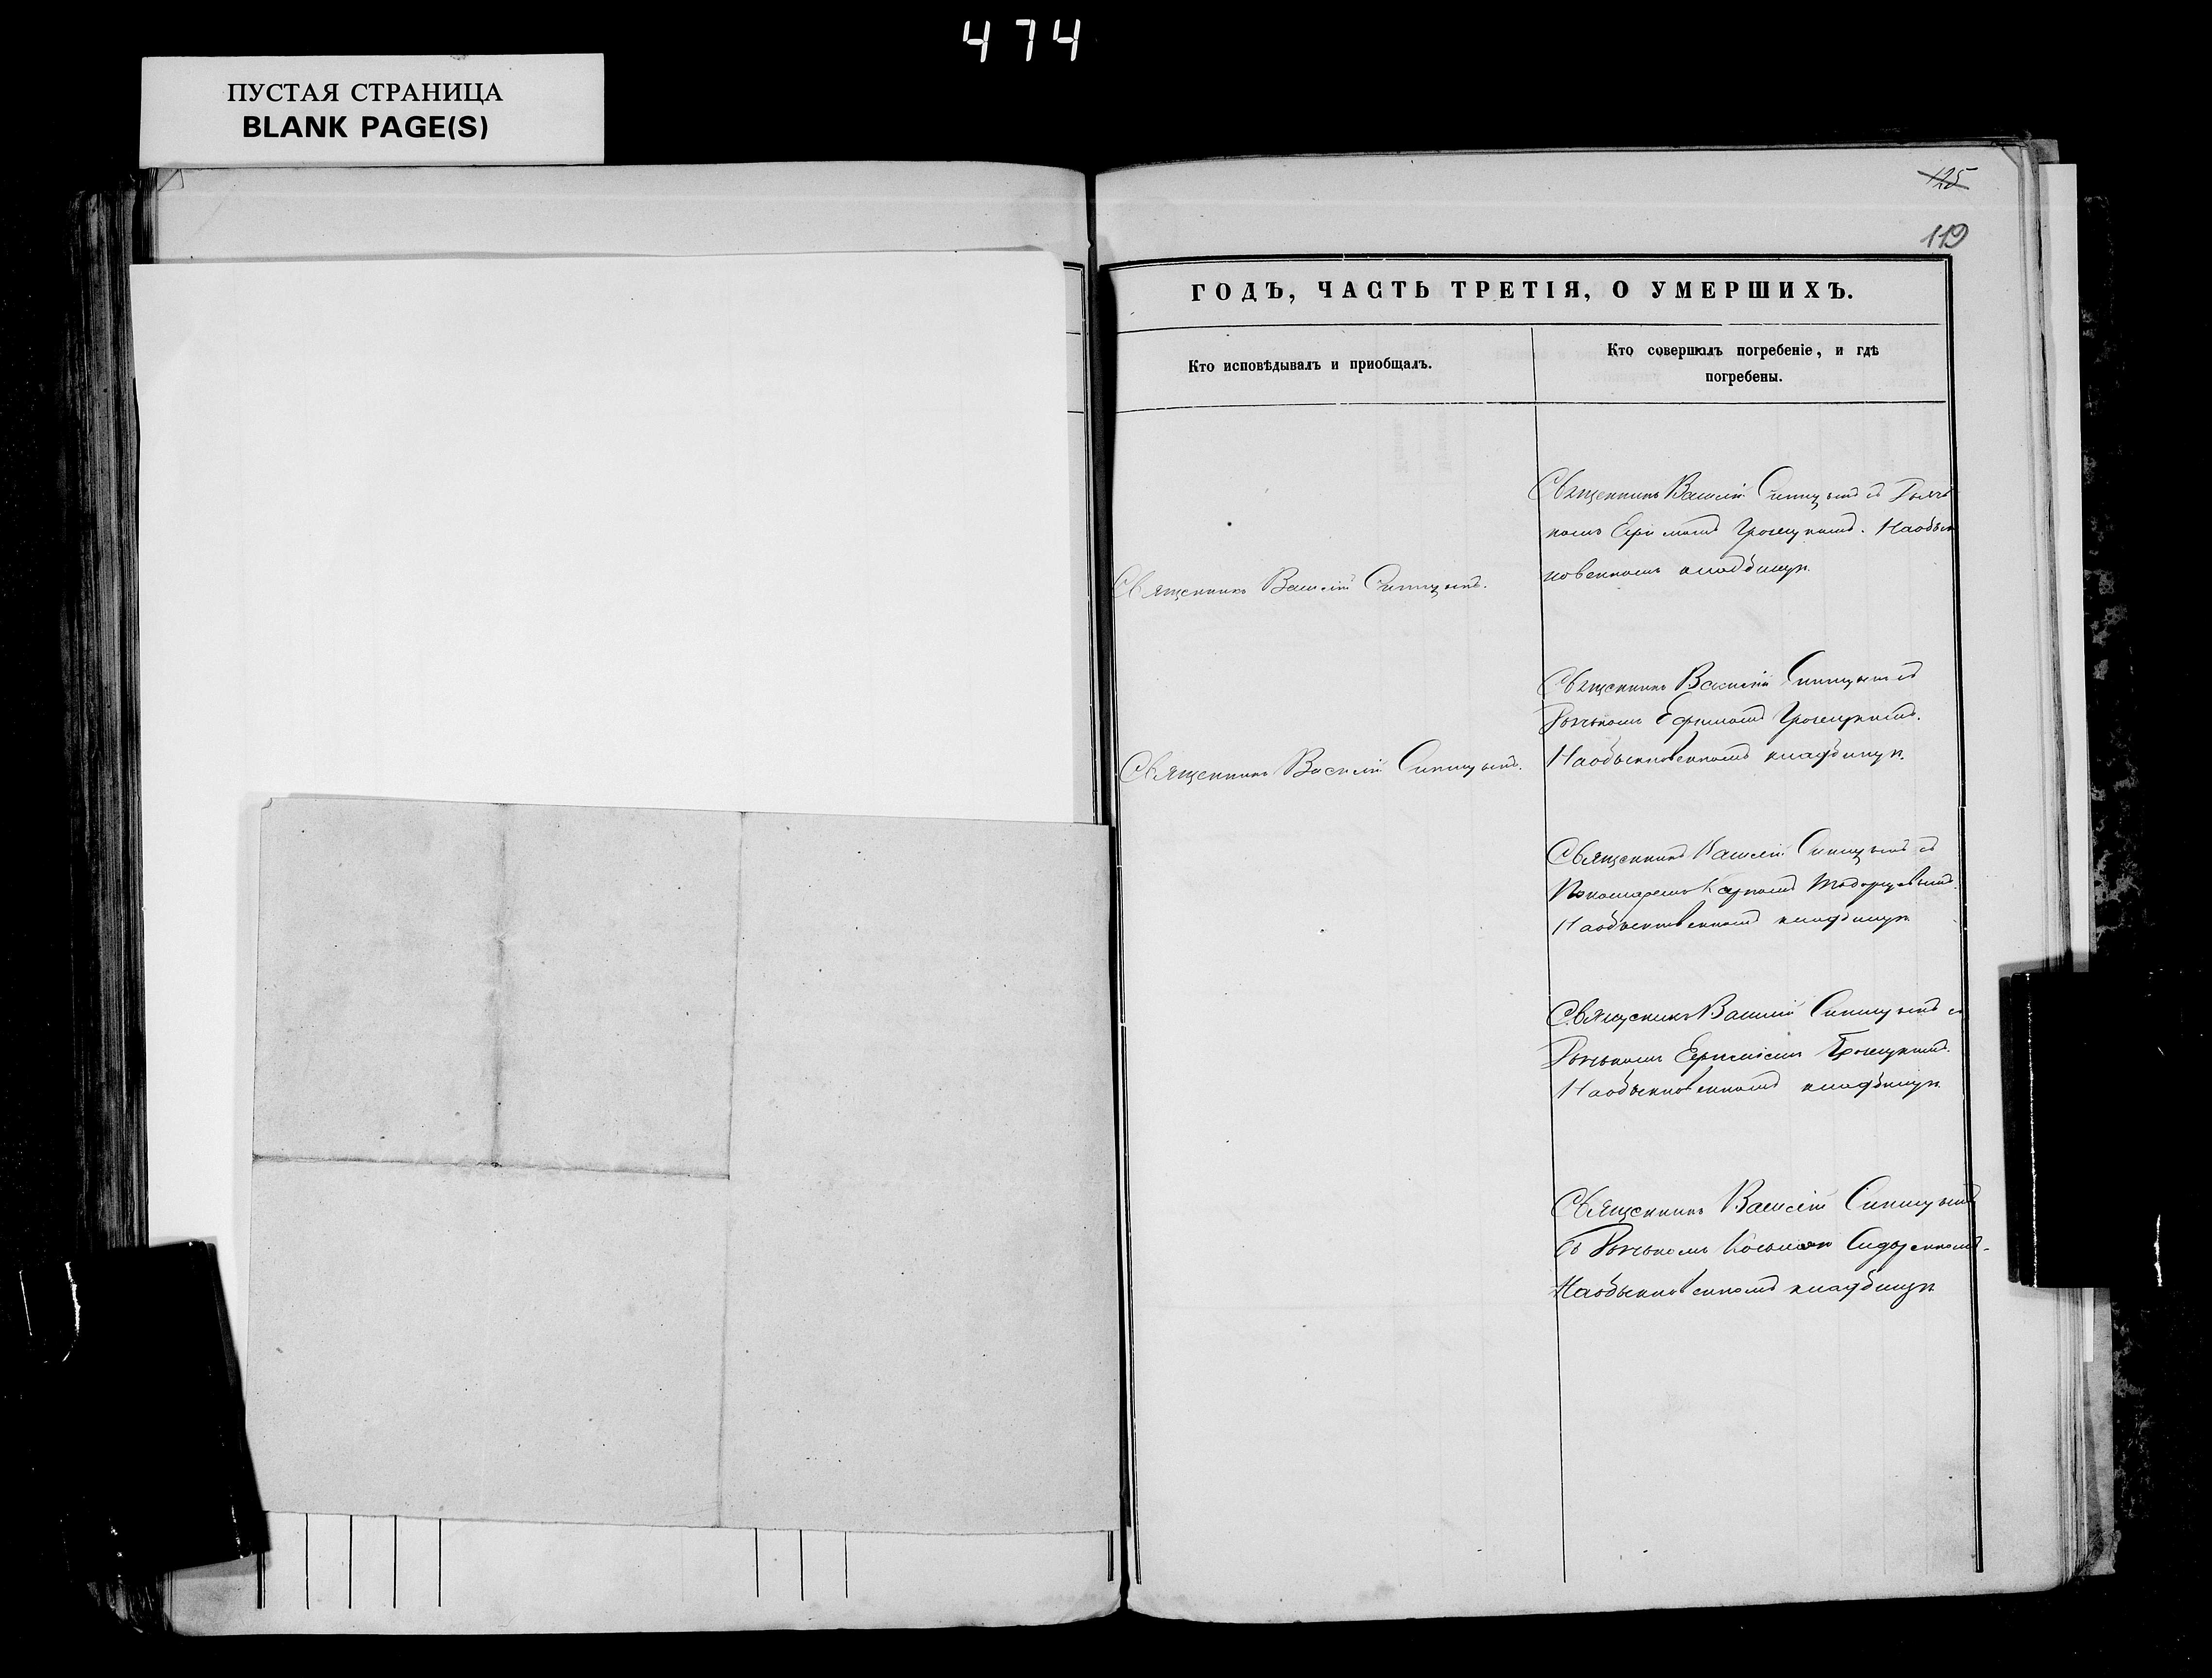 474
ПУСТАЯ СТРАНИЦА
BLANK PAGE(S)
125
119
ГОДЪ, ЧАСТЬ ТРЕТІЯ, О УМЕРШИХЪ.
Кто исповѣдывалъ и приобщалъ.
Кто совершалъ погребеніе, и гдѣ
погребены.
Священникъ Василій Синицынъ съ Дьячь
комъ Ефимомъ Троицкимъ. На обык
новенномъ кладбищѣ
Священникъ Василій Синицынъ.
Священникъ Василій Синицынъ съ
Дьячькомъ Ефимомъ Троицкимъ.
На обыкновенномъ кладбищѣ.
Священникъ Василій Синицынъ.
Священникъ Василій Синицынъ съ
Пономаремъ Карпомъ
На обыкновенномъ кладбищѣ
Священикъ Василій Синицынъ съ
Дьячькомъ Ефиміемъ Троицкимъ.
На обыкновенномъ кладбищѣ
Священникъ Василій Синицынъ
съ Дьячькомъ
На обыкновенномъ кладбищѣ